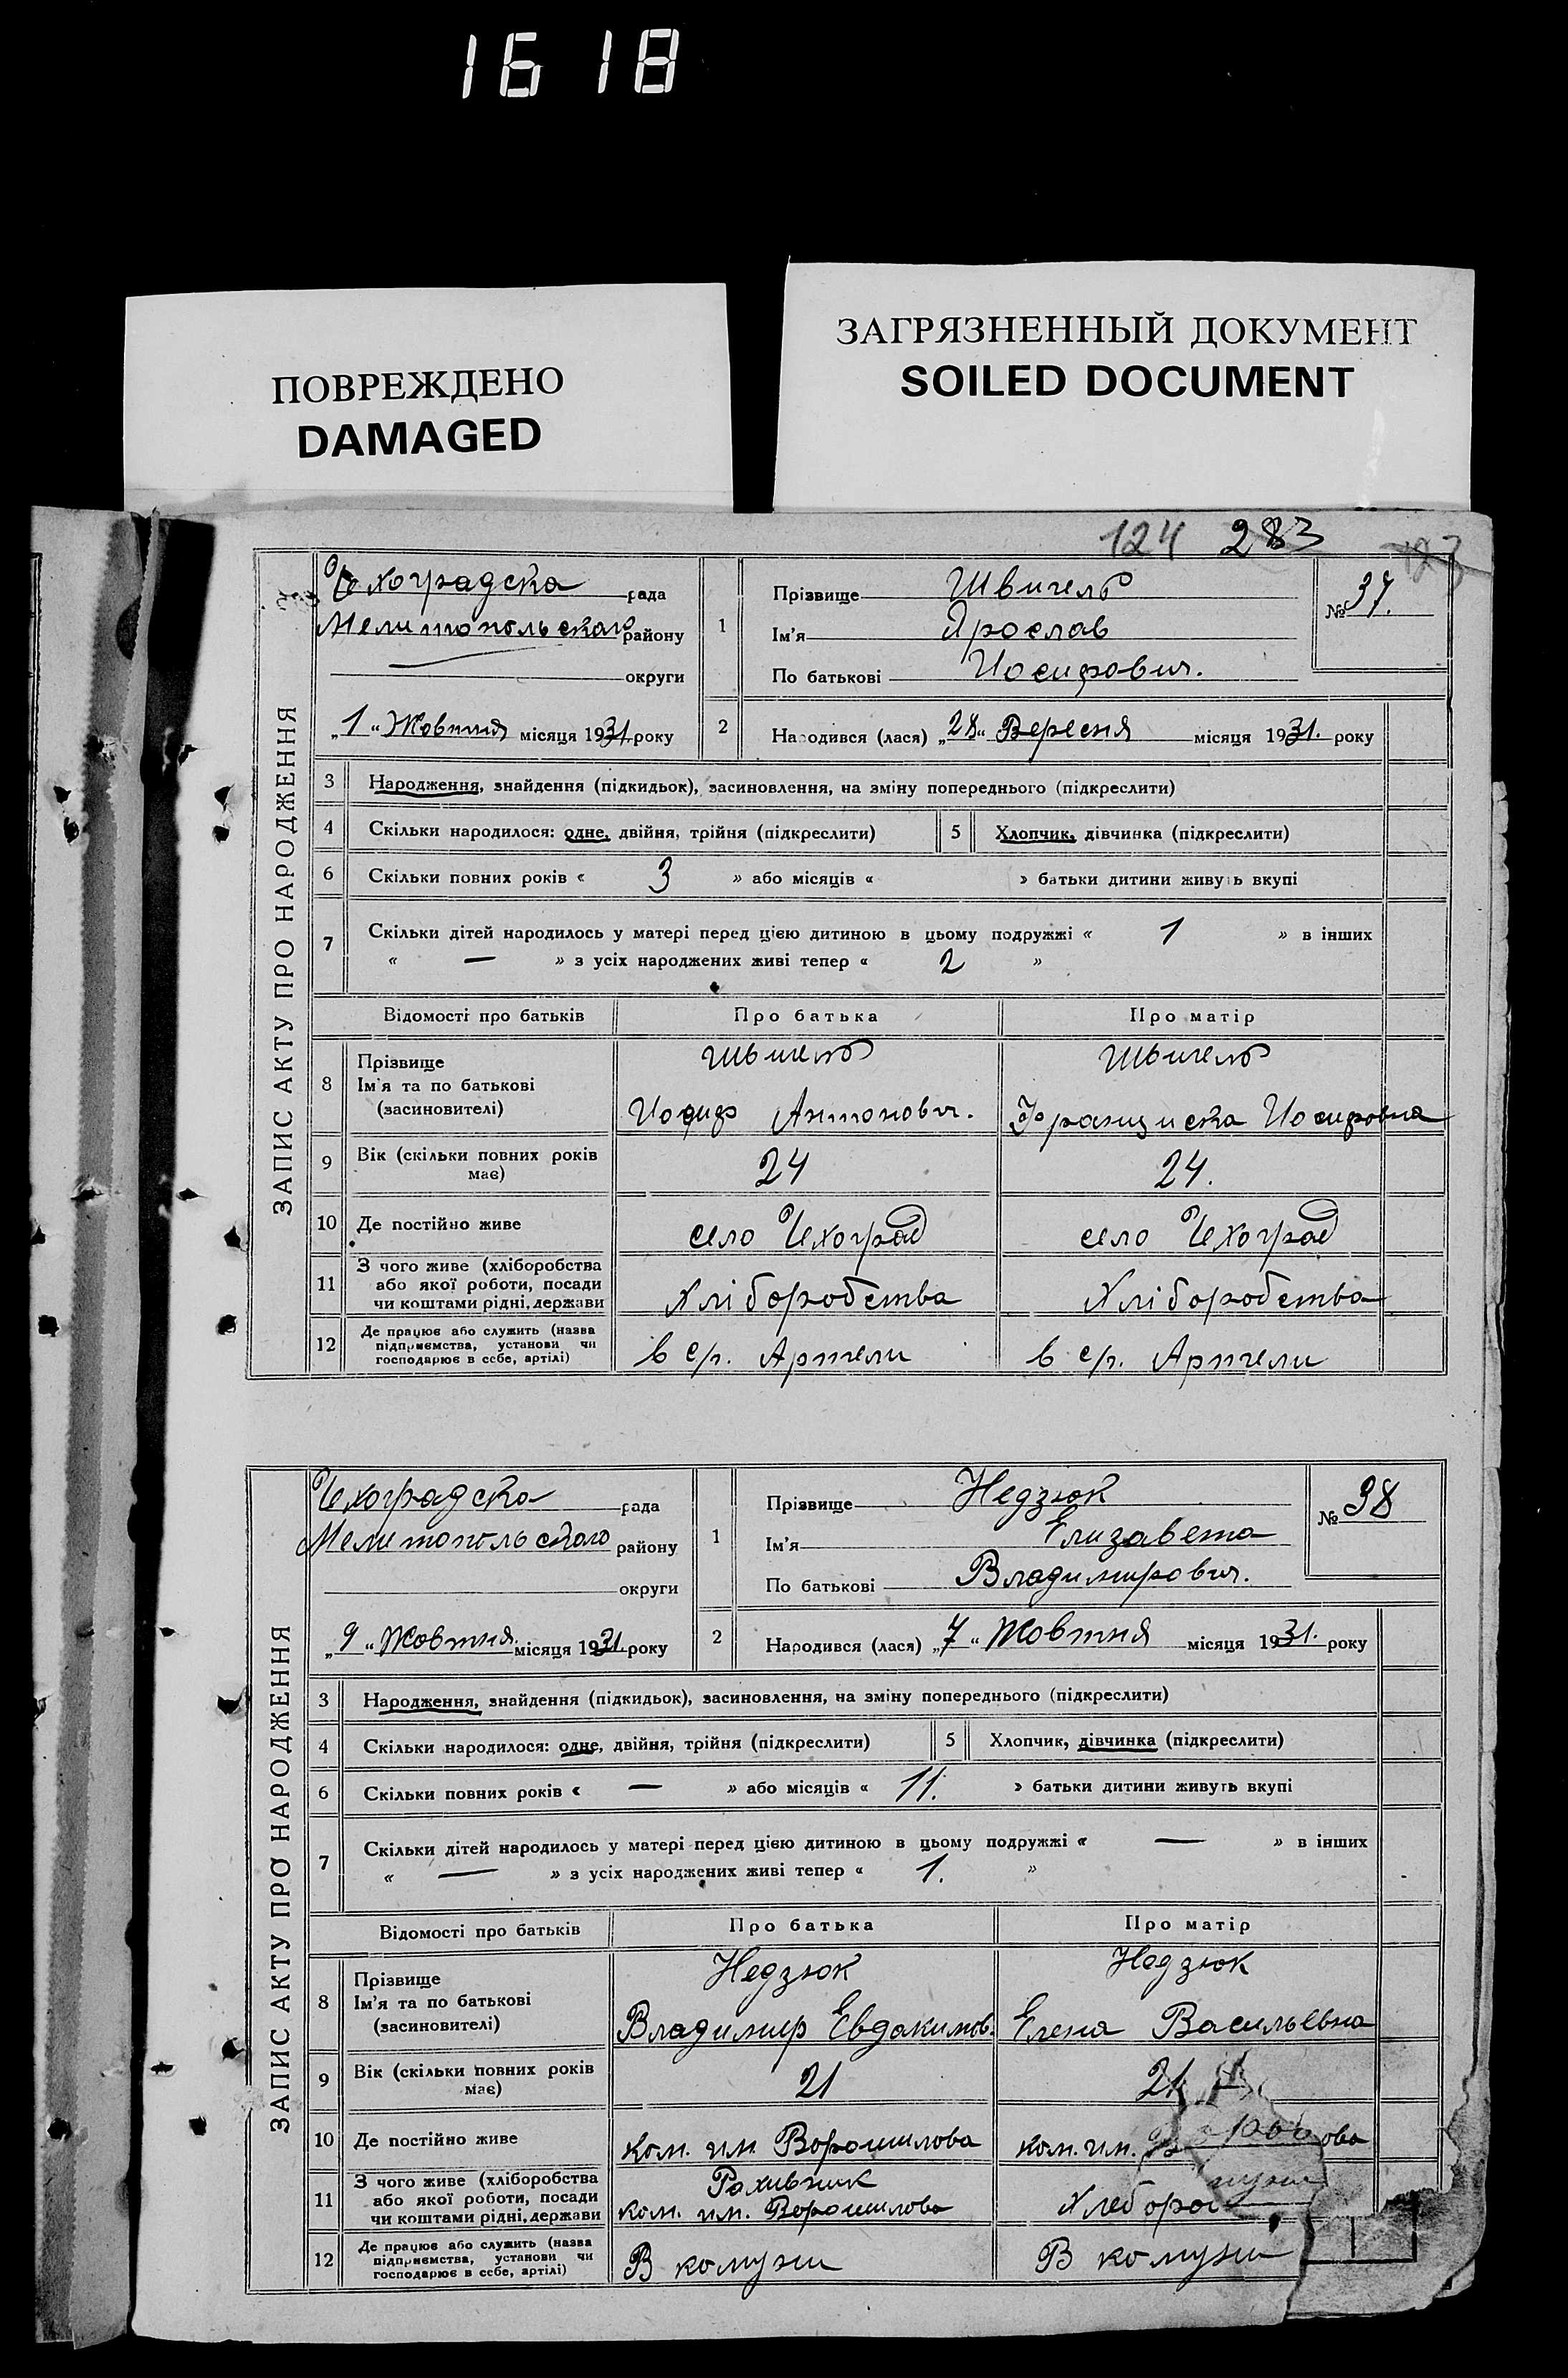 1618
ПОВРЕЖДЕНО
DAMAGED
ЗАГРЯЗНЕННЫЙ ДОКУМЕНТ
SOILED DOCUMENT
124 283
ЗАПИС АКТУ ПРО НАРОДЖЕННЯ
Чехоградска рада
Мелитопольского району
округи
„1“ Жовтня місяця 1931 року
1
Прізвище Швигель
Ім'я Ярослав
По батькові Иосифович.
№ 37.
2 Народився (лася) „28“ Вересня місяця 1931. року
3 Народження, знайдення (підкидьок), засиновлення, на зміну попереднього (підкреслити)
4 Скільки народилося: одне, двійня, трійня (підкреслити) 5 Хлопчик, дівчинка (підкреслити)
6 Скільки повних років « 3 » або місяців « » батьки дитини живуть вкупі
7 Скільки дітей народилось у матері перед цією дитиною в цьому подружжі « 1 » в інших
« — » з усіх народжених живі тепер « 2 »
Відомості про батьків Про батька Про матір
8 Прізвище Швигель Швигель
Ім'я та по батькові
(засиновителі) Иосиф Антонович. Франциска Иосифовна
9 Вік (скільки повних років має) 24 24.
10 Де постійно живе село Чехоград село Чехоград
11 З чого живе (хліборобства
або якої роботи, посади
чи коштами рідні, держави Хліборобства Хліборобства
12 Де працює або служить (назва
підприємства, установи чи
господарює в себе, артілі) в с/г. Артели в с/г. Артели
ЗАПИС АКТУ ПРО НАРОДЖЕННЯ
Чехоградска рада
Мелитопольского району
округи
„9“ Жовтня місяця 1931 року
1
Прізвище Недзюк
Ім'я Елизавета
По батькові Владимирович.
№ 38
2 Народився (лася) „7“ Жовтня місяця 1931. року
3 Народження, знайдення (підкидьок), засиновлення, на зміну попереднього (підкреслити)
4 Скільки народилося: одне, двійня, трійня (підкреслити) 5 Хлопчик, дівчинка (підкреслити)
6 Скільки повних років « — » або місяців « 11. » батьки дитини живуть вкупі
7 Скільки дітей народилось у матері перед цією дитиною в цьому подружжі « — » в інших
« — » з усіх народжених живі тепер « 1. »
Відомості про батьків Про батька Про матір
8 Прізвище Недзюк Недзюк
Ім'я та по батькові
(засиновителі) Владимир Евдокимов. Елена Васильевна
9 Вік (скільки повних років має) 21 21
10 Де постійно живе ком. им Ворошилова ком. им.
11 З чого живе (хліборобства Рахивник
або якої роботи, посади
чи коштами рідні, держави ком. им. Ворошилова
12 Де працює або служить (назва
підприємства, установи чи
господарює в себе, артілі) В комуни В комуни